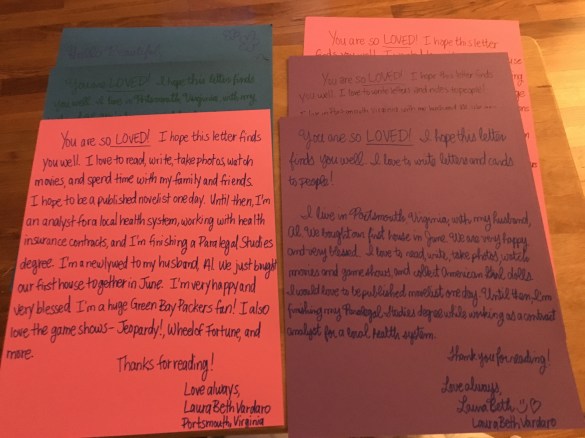 You are so LOVED! I hope this letter finds
You are so LOVED! I hope this letter
finds you well. I love to write letters and notes to people!
You are so LOVED! I hope this letter finds
you well. I live in Portsmouth Virginia, with my
You are so LOVED! I hope this letter finds
you well. I love to read, write, take photos, watch
movies, and spend time with my family and friends.
I hope to be a published novelist one day. Until then, I'm
an analyst for a local health system, working with health
insurance contracts, and I'm finishing a Paralegal Studies
degree. I'm a newlywed to my husband, Al. We just bought
our first house together in June. I'm very happy and
very blessed. I'm a huge Green Bay Packers fan! I also
love the game shows- Jeopardy!, Wheel of Fortune, and
more.
Thanks for reading!
Love always,
Laura Beth Vardaro
Portsmouth Virginia
You are so LOVED! I hope this letter
finds you well. I love to write letters and cards
to people!
I live in Portsmouth Virginia, with my husband,
Al. We bought our first house in June. We are very happy
and very blessed. I love to read, write, take photos, watch
movies and game shows, and collect American Girl dolls.
I would love to be published novelist one day. Until then, I'm
finishing my Paralegal Studies degree while working as a contract
analyst for a local health system.
Thank you for reading!
Love always,
Laura Beth
Laura Beth Vardaro